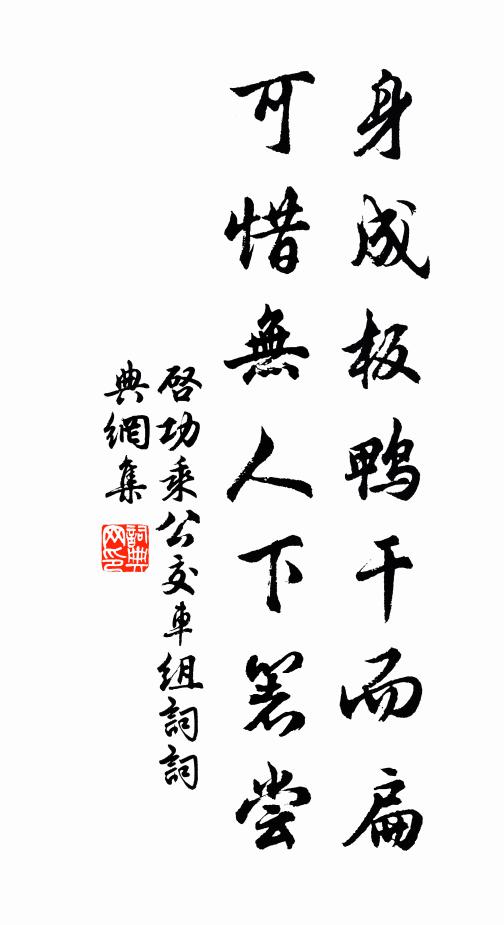 身成板鴨干而扁
可惜無人下箸嘗
啓功乘公交車組詞詞
典網集
詞典
网印